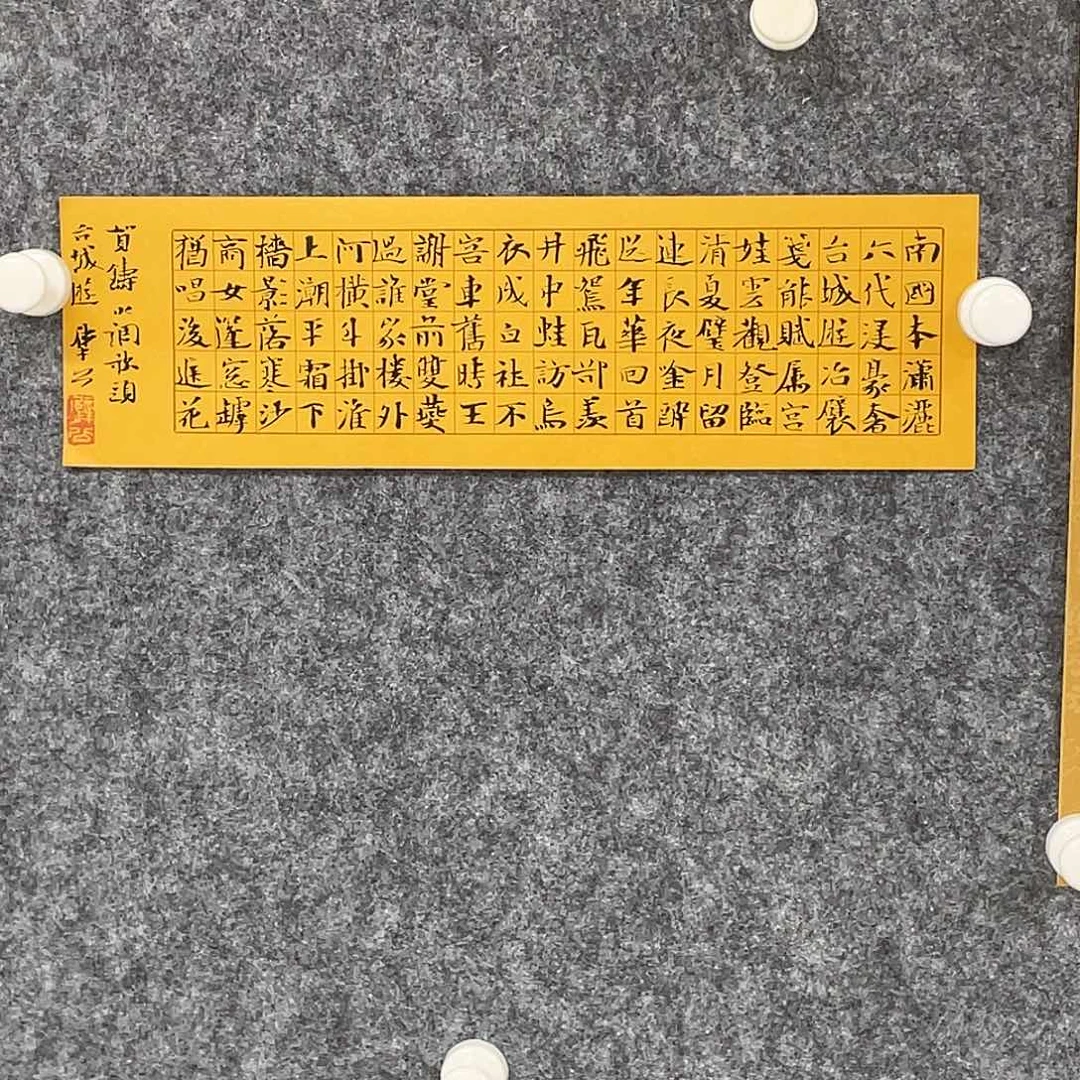 南國本瀟灑
六代浸豪奢
台城遊冶襞
箋能賦属宮
娃雲觀登臨
清夏璧月留
連長夜唫醉
送年華回首
飛鴛瓦卻羨
井中蛙訪烏
衣成白社不
容車舊時王
謝堂前雙燕
過誰家楼外
河橫斗掛淮
上潮平霜下
檣影落寒沙
商女篷窓罅
猶唱後庭花
賀鑄水調歌頭
台城遊